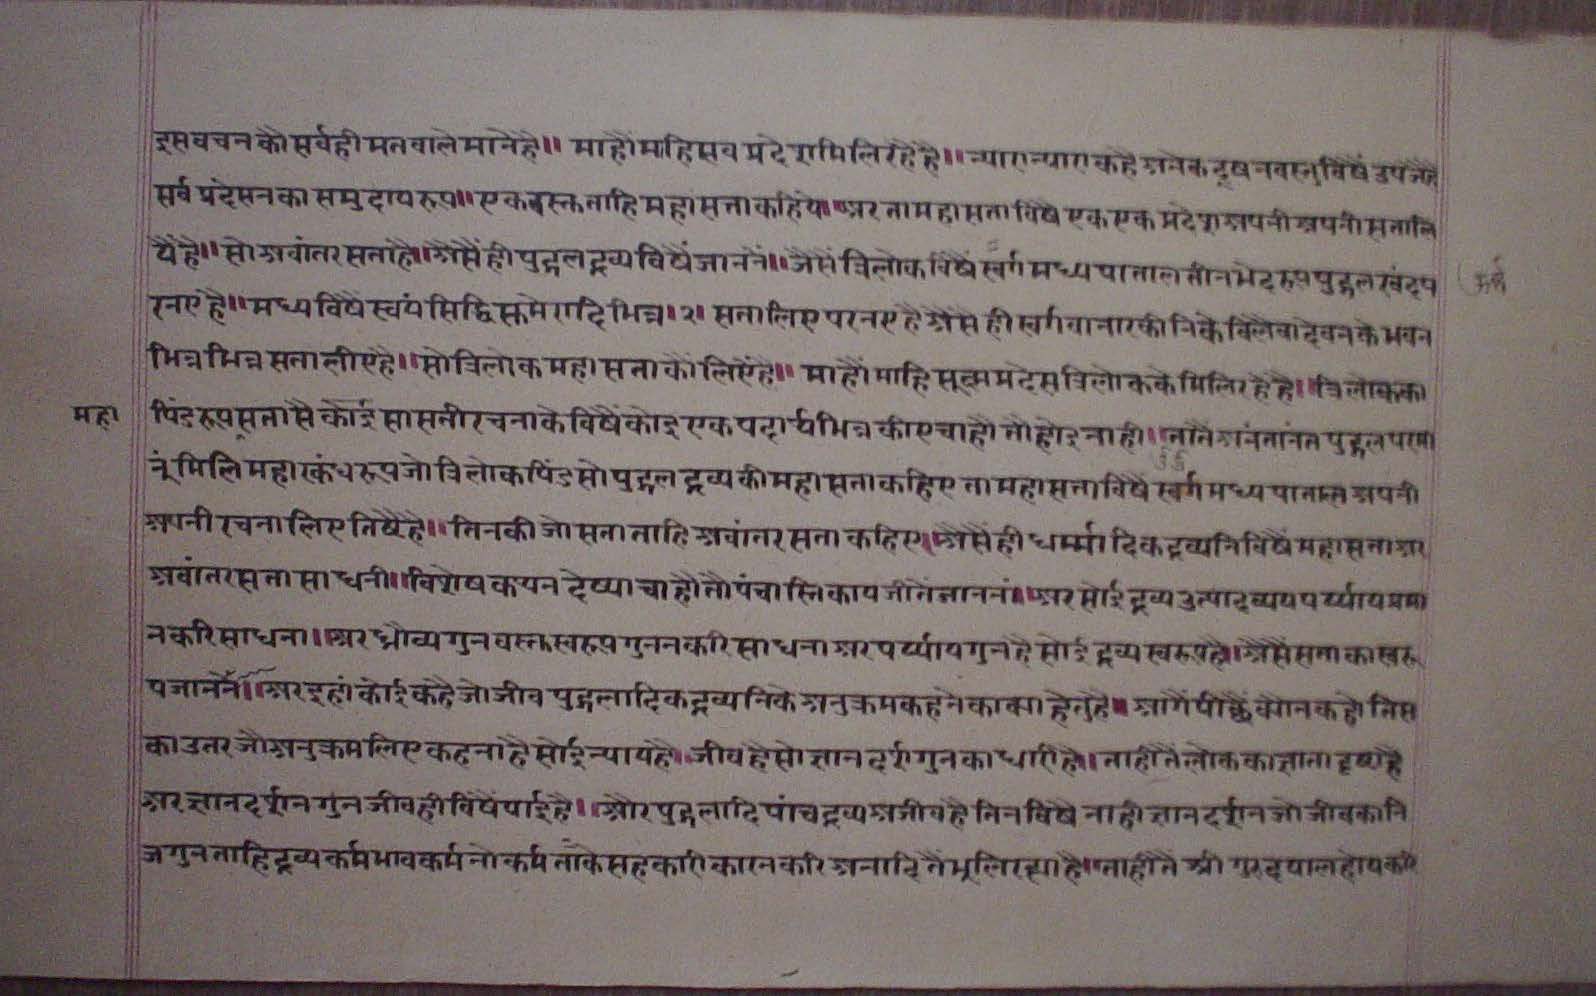 इस वचन कौ सर्वही मत वाले माने है॥ माहौं माहि सब प्रदेश मिलि रहे है॥ न्यारा न्यारा कहै अनेक दूषन वस्तु विषैं उपजै है
सर्व प्रदेसन का समुदाय रूप॥ एक वस्तु ताहि महा सत्ता कहिये॥ अर ता महा सत्ता विषै एक एक प्रदेश अपनी अपनी सत्ता लि
यैं है॥ सो अवांतर सत्ता है॥ अैसैं ही पुद्गल द्रव्य विषैं जाननैं॥ जैसैं त्रिलोक विषैं स्वर्ग मध्य पाताल तीन भेद रूप पुद्गल खंद प
रनए है॥ मध्य विषै स्वयं सिद्धि रूप मेरादि भिन्न।२। सत्ता लिए परनए है अैसै ही स्वर्ग वा नारकीनि के विलै वा देवन के भवन
भिन्न भिन्न सत्ता लीए है॥ सो त्रिलोक महा सत्ता कौं लिऐं है॥ माहौं माहि सूक्ष्म प्रदेस त्रिलोक के मिलि रहे है॥ त्रिलोक का
महा पिंड रूप सत्ता सै कोई सासती रचना के विषैं कोइ एक पदार्थ भिन्न कीए चाहौ तौ होइ नाही॥ तातै अनंतानंत पुद्गल परमा
नूं मिलि महा स्कंध रूप जो त्रिलोक पिंड सो पुद्गल द्रव्य की महा सत्ता कहिए ता महा सत्ता विषै स्वर्ग मध्य पाताल अपनी
अपनी रचना लिए तिष्ठै है॥ तिन की जो सत्ता ताहि अवांतर सत्ता कहिए॥ अैसैं ही धर्म्मादिक द्रव्यनि विषैं महा सत्ता अर
अवांतर सत्ता साधनी॥ विशेष कथन देष्या चाहौ तौ पंचास्तिकाय जी तें जाननां॥ अर सोई द्रव्य उत्पाद व्यय पर्य्याय प्रमा
न करि साधना॥ अर ध्रौव्य गुन वस्तु स्वरूप गुनन करि साधना अर पर्य्याय गुन है सोई द्रव्य स्वरूप है॥ अैसैं सत्ता का स्वरू
प जाननैं॥ अर इहां कोई कहै जो जीव पुद्गलादिक द्रव्यनि के अनुक्रम कहने का क्या हेतु है॥ आगैं पीछैं क्यौं न कहो तिस
का उतर जौ अनुक्रम लिए कहना है सोई न्याय है॥ जीव है सो ज्ञान दर्श गुन का धारी है॥ ताही तै लोक का ज्ञाता दृष्टा है
अर ज्ञान दर्शन गुन जीव ही विषैं पाईहै॥ और पुद्गलादि पांच द्रव्य अजीव है तिन विषै नाही ज्ञान दर्शन जो जीव का नि
ज गुन ताहि द्रव्य कर्म भाव कर्म नो कर्म ताके सहकारी कारन करि अनादि तैं भूलि रह्या है॥ ताही तै श्री गुर दयाल होय करि